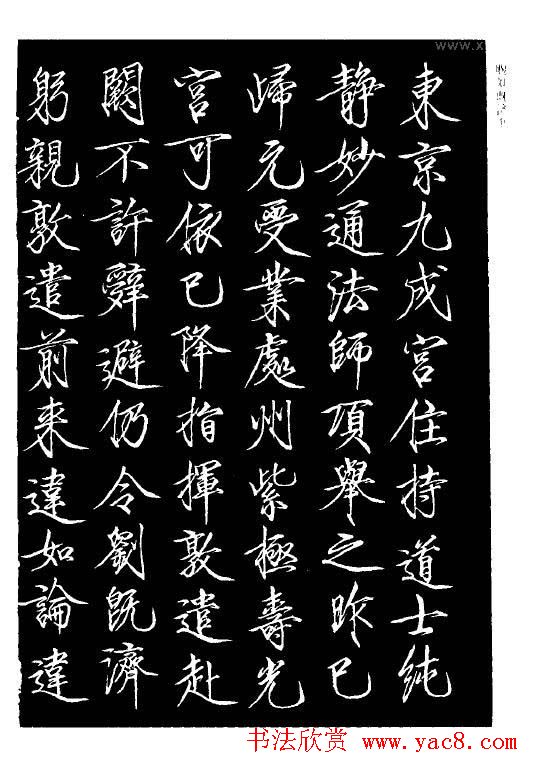 東京九成宮住持道士純
静妙通法師項舉之昨已
歸元受業處州紫極壽光
宮可依已降指揮敦遣赴
闕不許辭避仍令劉既濟
躬親敦遣前来違如論違
www.x
书法欣赏 www.yac8.com